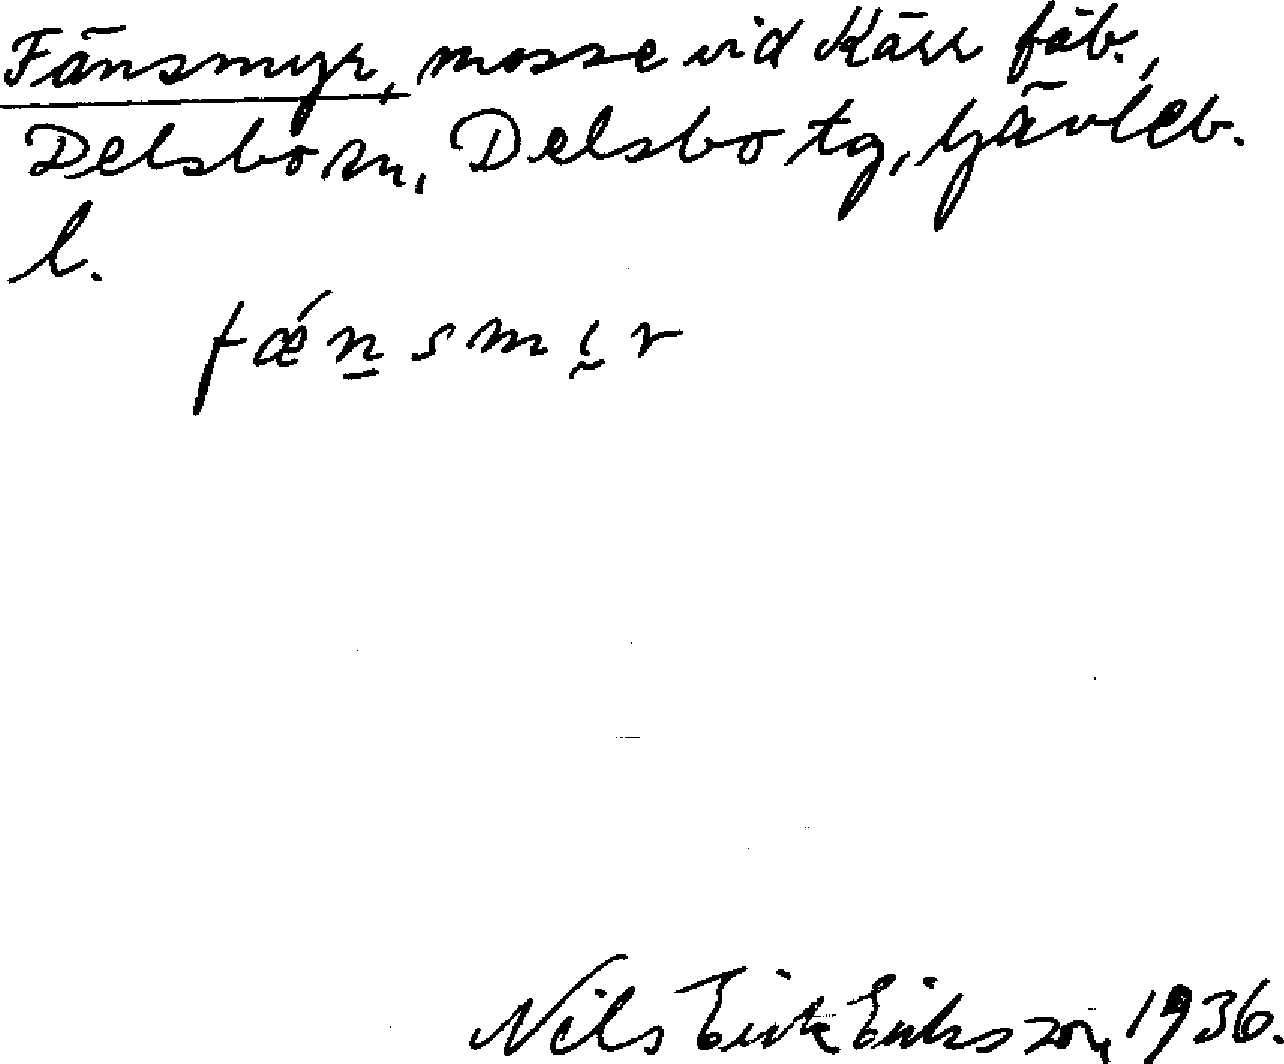 Fänsmyr, mosse vid Kärr fäb.,
Delsbo sn, Delsbo tg, Gävleb.
l.
fǽn̲smı̰r
Nils Erik Eriksson, 1936.